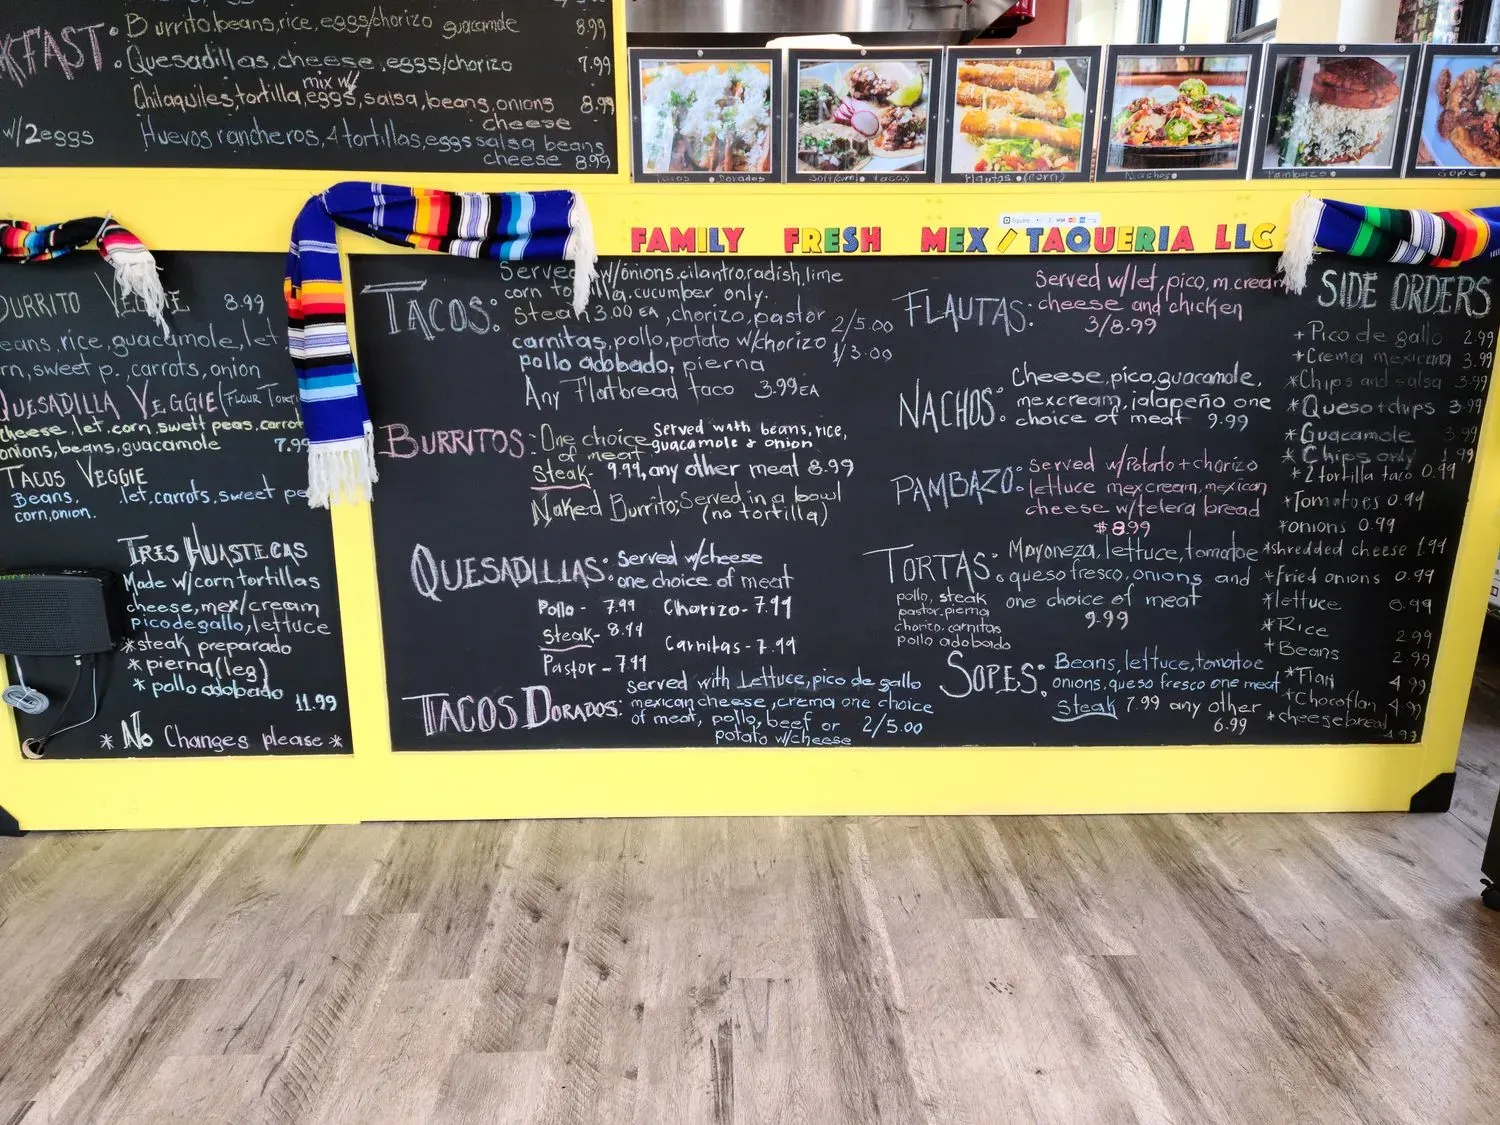 Burrito, beans, rice, eggs/chorizo guacamole 8.99
KFAST: Quesadillas, cheese, eggs/chorizo 7.99
mix w/
Chilaquiles, tortilla, eggs, salsa, beans, onions 8.99
cheese
w/2eggs Huevos rancheros, 4 tortillas, eggs salsa beans
cheese 8.99
Tacos • Dorados
Tacos
Flautas • (corn)
Nachos •
Pambazo •
Square VISA
FAMILY FRESH MEX / TAQUERIA LLC
BURRITO VEGGIE 8.99
eans, rice, guacamole, let.
rn, sweet p., carrots, onion
QUESADILLA VEGGIE (FLOUR TORTI
cheese, let. corn. swett peas, carrot
onions, beans, guacamole 7.99
TACOS VEGGIE
Beans, let, carrots, sweet pe
corn, onion.
TRES HUASTECAS
Made w/corn tortillas
cheese, mex/cream
pico de gallo, lettuce
*steak preparado
*pierna (leg)
*pollo adobado
11.99
* No Changes please *
TACOS: Served w/onions, cilantro, radish, lime
corn to illa, cucumber only.
Steak 3.00 EA, chorizo, pastor 2/5.00
carnitas, pollo, potato w/chorizo 1/3.00
pollo adobado, pierna
Any Flatbread taco 3.99 EA
BURRITOS: One choice of meat Served with beans, rice,
guacamole & onion
Steak- 9.99, any other meat 8.99
Naked Burrito; Served in a bowl
(no tortilla)
QUESADILLAS: Served w/cheese
one choice of meat
Pollo - 7.99 Chorizo - 7.99
Steak- 8.99
Carnitas - 7.99
Pastor - 7.99
TACOS DORADOS: served with Lettuce, pico de gallo
mexican cheese, crema one choice
of meat, pollo, beef or 2/5.00
potato w/cheese
FLAUTAS: Served w/let, pico, m. cream
cheese and chicken
3/8.99
NACHOS: Cheese, pico, guacamole,
mexcream, jalapeño one
choice of meat 9.99
PAMBAZO: Served w/Potato + chorizo
lettuce mexcream, mexican
cheese w/telera bread
$8.99
TORTAS: Mayoneza, lettuce, tomatoe
queso fresco, onions and
one choice of meat
9.99
pollo, steak
pastor, pierna
chorizo, carnitas
pollo adobado
SOPES: Beans, lettuce, tomatoe
onions, queso fresco one meat
Steak 7.99 any other
6.99
SIDE ORDERS
+Pico de gallo 2.99
*Crema mexicana 3.99
*Chips and salsa 3.99
*Queso + chips 3.99
*Guacamole 3.99
*Chips only 1.99
*2 tortilla taco 0.99
*Tomatoes 0.99
*onions 0.99
*shredded cheese 1.99
*fried onions 0.99
*lettuce 0.99
*Rice 2.99
*Beans 2.99
*Flan 4.99
*Chocoflan 4.99
*cheesebread 4.99